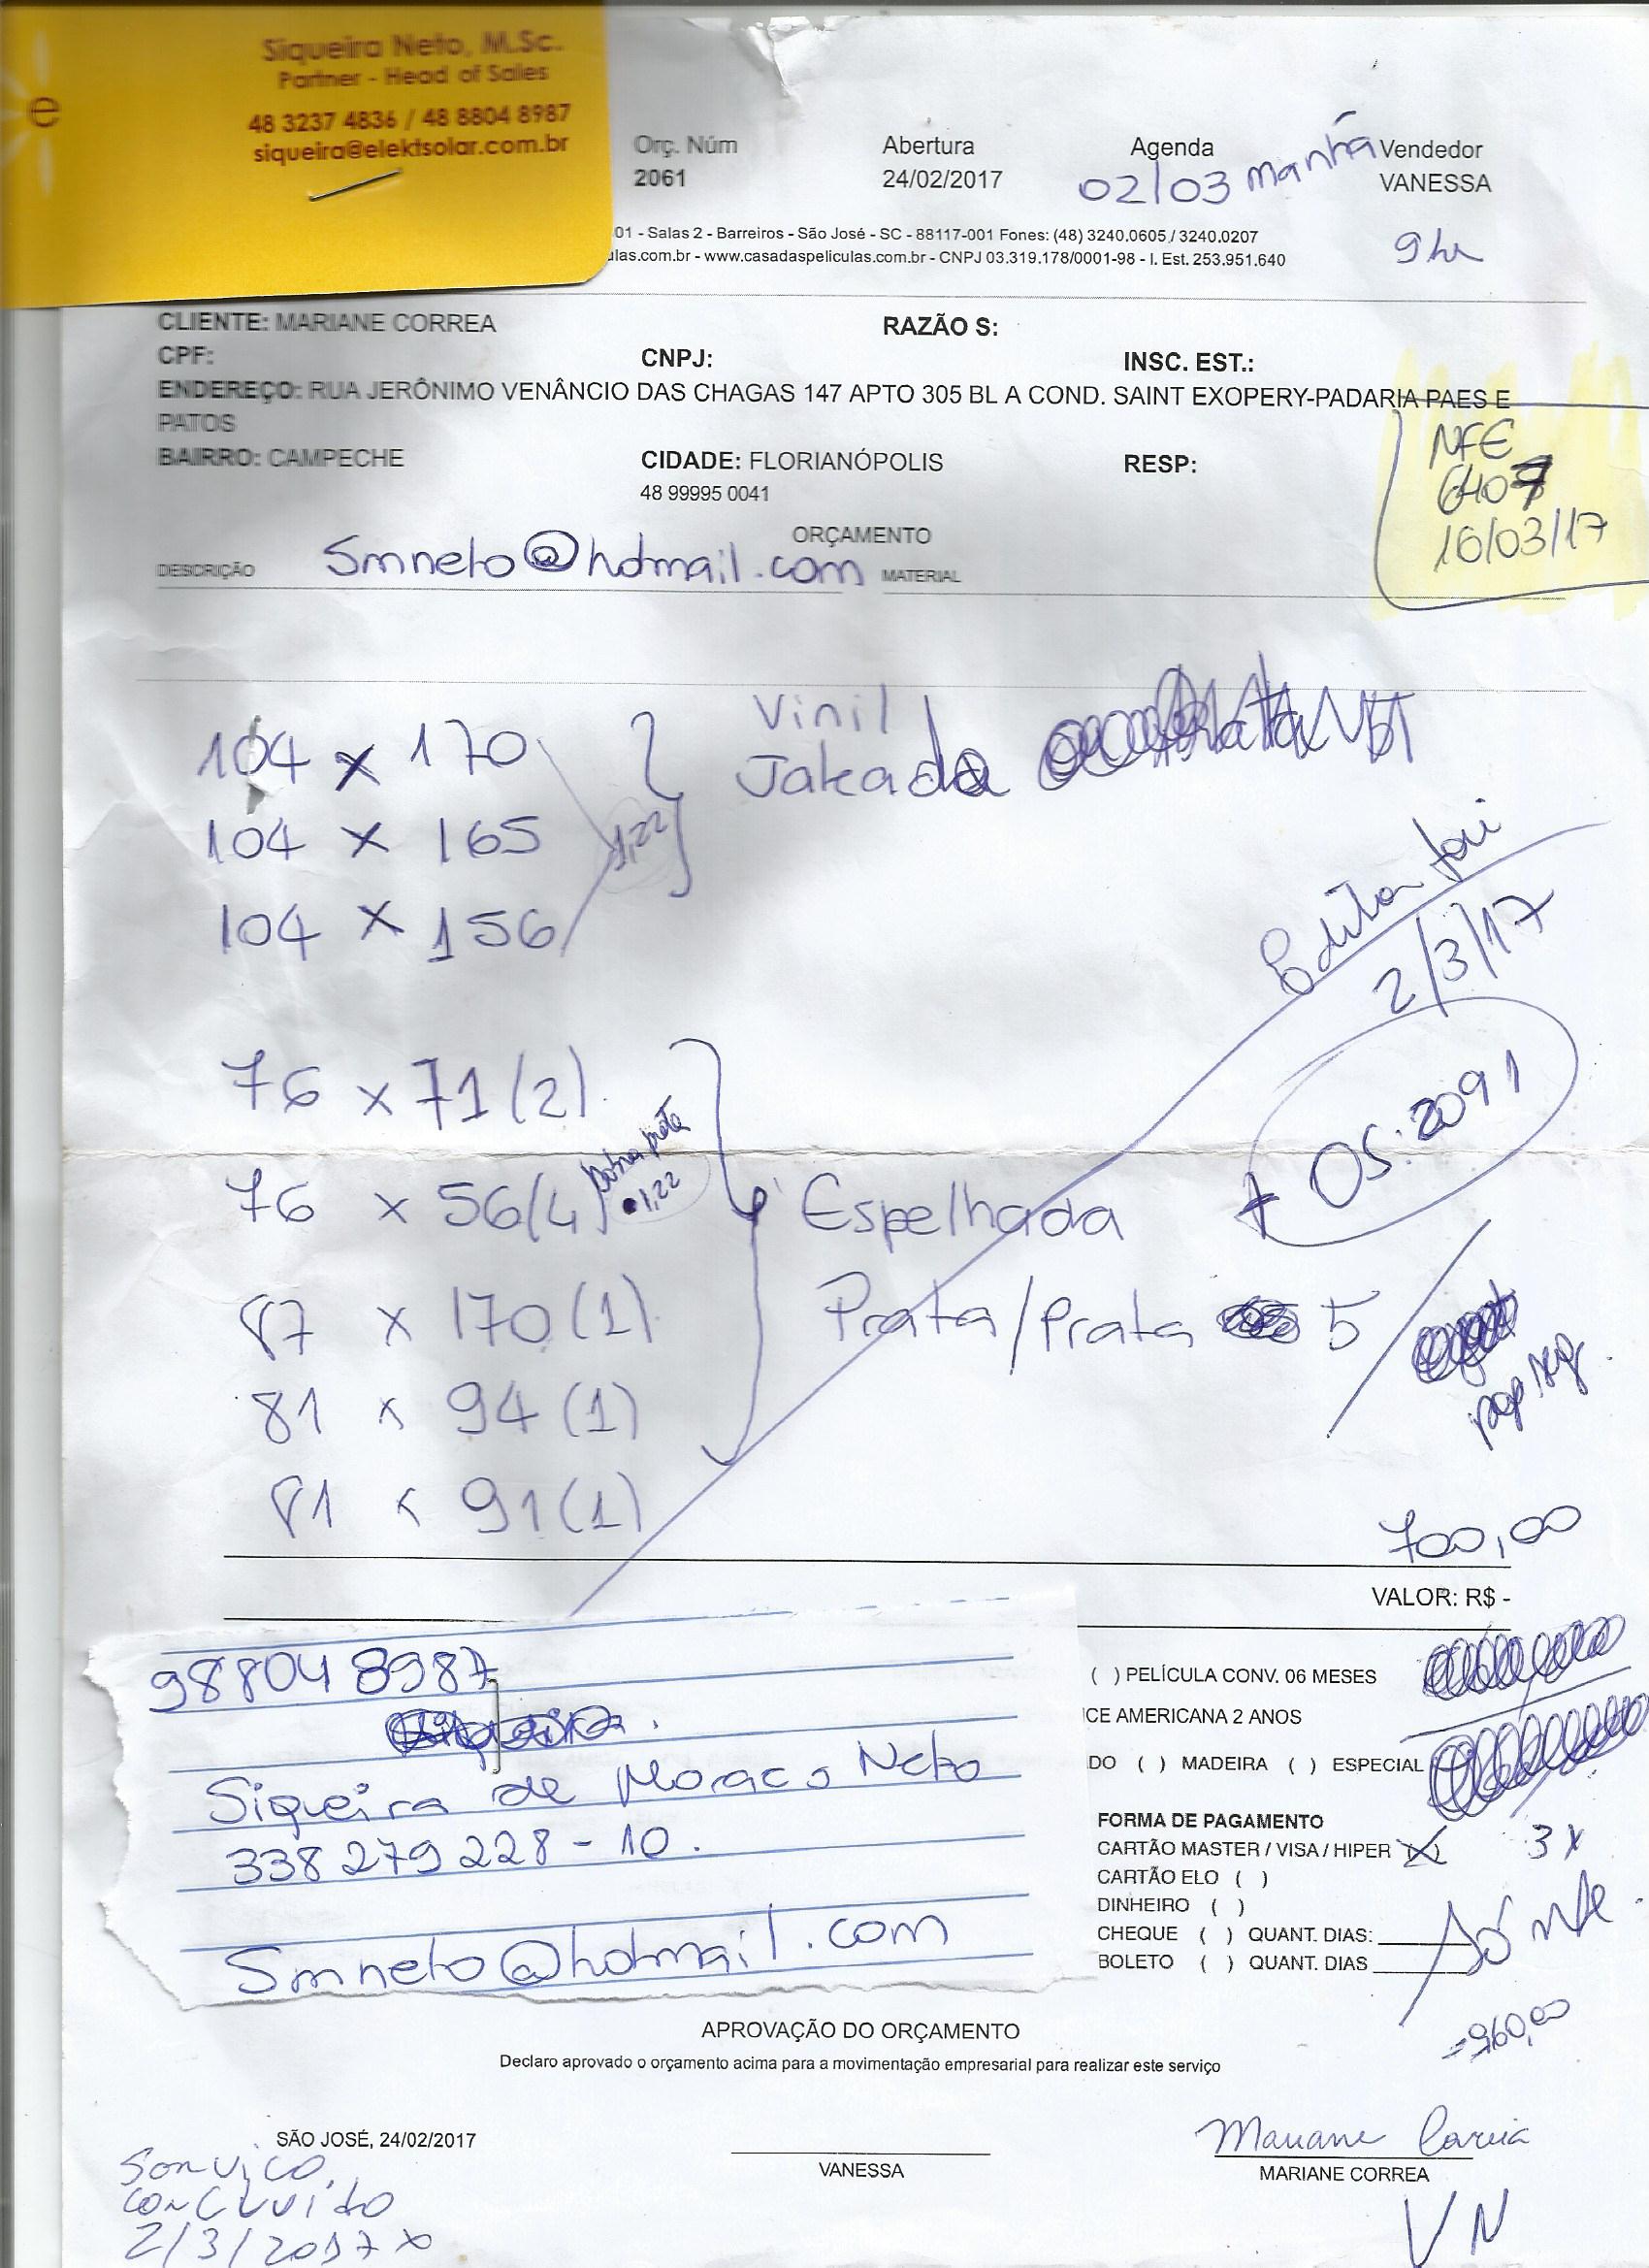 Siqueira Neto, M.Sc.
Partner - Head of Sales
48 3237 4836 / 48 8804 8987
siqueira@elektsolar.com.br
e
Orç. Núm Abertura Agenda Vendedor
2061 24/02/2017 02/03 manhã VANESSA
9hr
01 - Salas 2 - Barreiros - São José - SC - 88117-001 Fones: (48) 3240.0605 / 3240.0207
ulas.com.br - www.casadaspeliculas.com.br - CNPJ 03.319.178/0001-98 - I. Est. 253.951.640
CLIENTE: MARIANE CORREA RAZÃO S:
CPF: CNPJ: INSC. EST.:
ENDEREÇO: RUA JERÔNIMO VENÂNCIO DAS CHAGAS 147 APTO 305 BL A COND. SAINT EXOPERY-PADARIA PAES E
PATOS
BAIRRO: CAMPECHE CIDADE: FLORIANÓPOLIS RESP:
48 99995 0041
NFE
6407
16/03/17
ORÇAMENTO
DESCRIÇÃO smneto@hotmail.com MATERIAL
104 x 170 Vinil
Jateado
104 x 165 1,22
104 x 156
2/3/17
76 x 71 (2)
OS: 2091
76 x 56 (4) 1,22 Espelhada
87 x 170 (1) Prata/Prata 5
81 x 94 (1)
81 x 91 (1)
700,00
VALOR: R$ -
988048987
Siqueira de Moraes Neto
338 279 228 - 10.
Smneto@hotmail.com
( ) PELÍCULA CONV. 06 MESES
CE AMERICANA 2 ANOS
DO ( ) MADEIRA ( ) ESPECIAL
FORMA DE PAGAMENTO
CARTÃO MASTER / VISA / HIPER (X) 3x
CARTÃO ELO ( )
DINHEIRO ( )
CHEQUE ( ) QUANT. DIAS:
BOLETO ( ) QUANT. DIAS
960,00
APROVAÇÃO DO ORÇAMENTO
Declaro aprovado o orçamento acima para a movimentação empresarial para realizar este serviço
SÃO JOSÉ, 24/02/2017
Mariane Correia
VANESSA MARIANE CORREA
Serviço
concluído
2/3/2017
VN